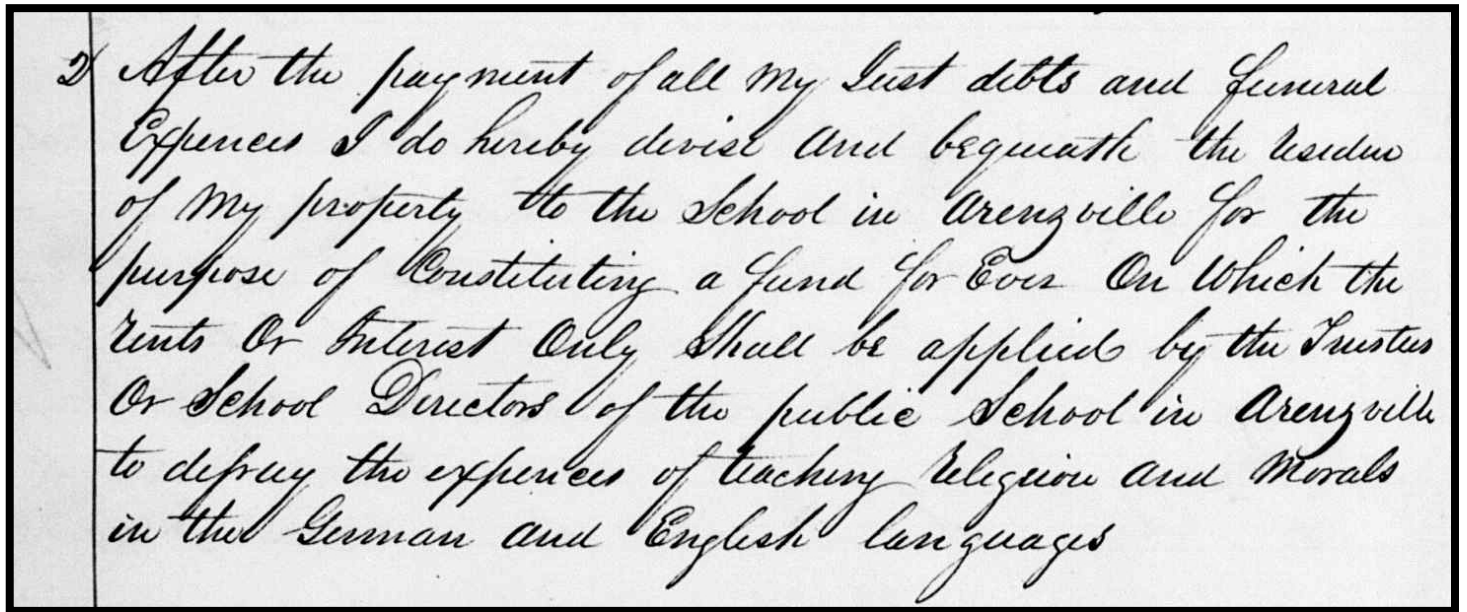 2) After the payment of all my Just debts and funeral
Expences I do hereby devise and bequeath the residue
of my property to the School in Arenzville for the
purpose of Constituting a fund for Ever On Which the
rents Or Interest Only Shall be applied by the Trustees
Or School Directors of the public School in Arenzville
to defray the expences of teaching religion and Morals
in the German and English languages